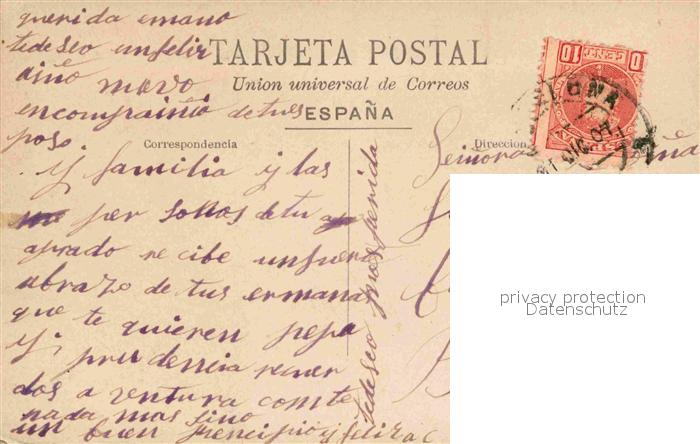 querida ermano
te deseo un felix
año nuevo
en compraiñia de tu es
poso
TARJETA POSTAL
Union universal de Correos
ESPAÑA
Correspondencia
Dirección
y familia y las
per sonos de tu
aprado re cibe un fuer
abrazo de tus ermana
que te quieren pepa
y prudencia recuer
dos a ventura com te
nada mas sino
un buen principio y feliz a
te deseo prosperida
Señora
10
CENT
privacy protection
Datenschutz